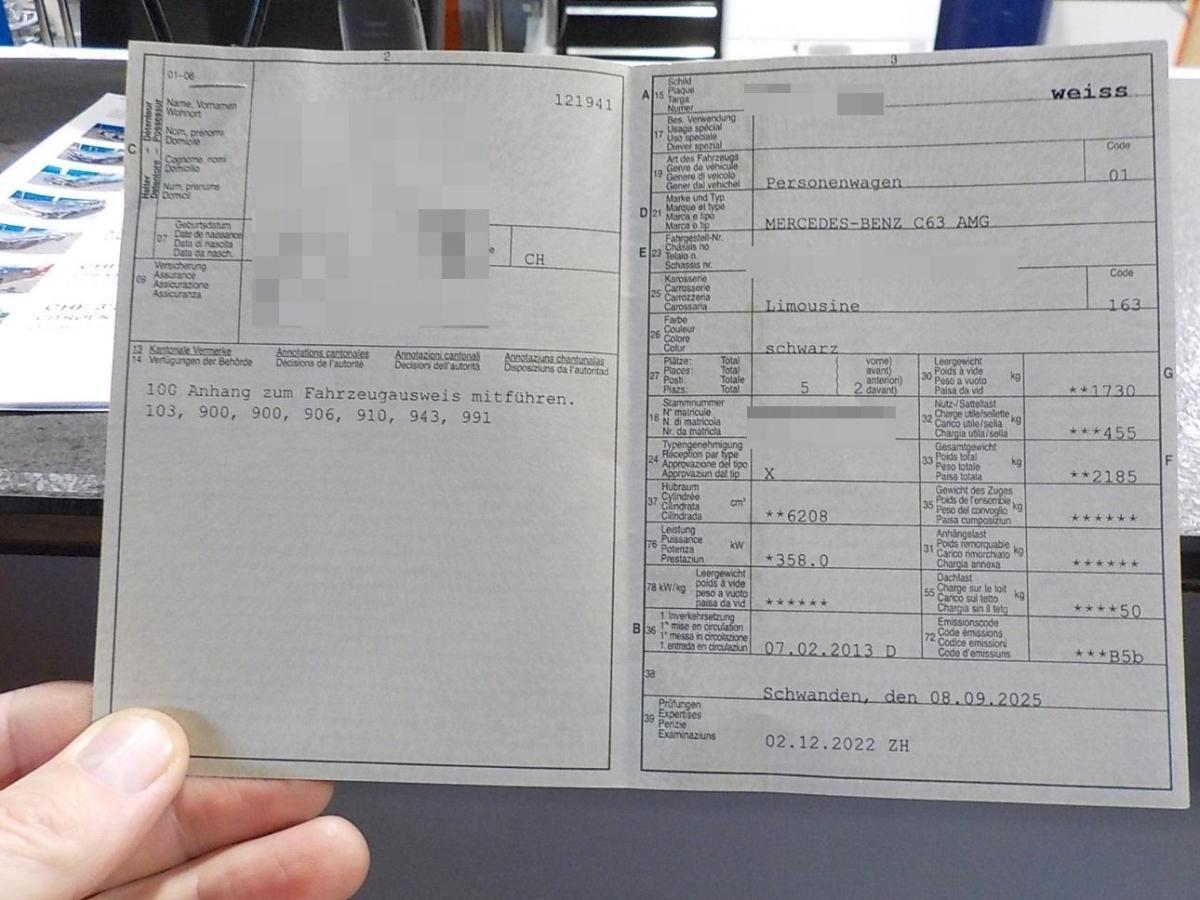 2
01-06
121941
C
Halter Détenteur
Detentore Possessur
Name, Vornamen
Wohnort
Nom, prénoms
Domicile
Cognome, nomi
Domicilio
Num, prenums
Domicil
07
Geburtsdatum
Date de naissance
Data di nascita
Data da nasch.
e
CH
09
Versicherung
Assurance
Assicurazione
Assicuranza
13
14
Kantonale Vermerke
Verfügungen der Behörde
Annotations cantonales
Décisions de l'autorité
Annotazioni cantonali
Decisioni dell'autorità
Annotaziuns chantunalas
Disposiziuns da l'autoritad
100 Anhang zum Fahrzeugausweis mitführen.
103, 900, 900, 906, 910, 943, 991
3
A 15
Schild
Plaque
Targa
Numer
weiss
17
Bes. Verwendung
Usage spécial
Uso speciale
Diever spezial
19
Art des Fahrzeugs
Genre de véhicule
Genere di veicolo
Gener dal vehichel
Personenwagen
Code
01
D 21
Marke und Typ
Marque et type
Marca e tipo
Marca e tip
MERCEDES-BENZ C63 AMG
E 23
Fahrgestell-Nr.
Châssis no
Telaio n.
Schassis nr.
25
Karosserie
Carrosserie
Carrozzeria
Carossaria
Limousine
Code
163
26
Farbe
Couleur
Colore
Colur
schwarz
27
Plätze: Total
Places: Total
Posti: Totale
Plazs: Total
5
vorne)
avant)
anteriori)
davant)
2
30
Leergewicht
Poids à vide
Peso a vuoto
Paisa da vid
kg
**1730
G
18
Stammnummer
N° matricule
N. di matricola
Nr. da matricla
32
Nutz-/Sattellast
Charge utile/sellette
Carico utile/sella
Chargia utila/sella
kg
***455
24
Typengenehmigung
Réception par type
Approvazione del tipo
Approvaziun dal tip
X
33
Gesamtgewicht
Poids total
Peso totale
Paisa totala
kg
**2185
F
37
Hubraum
Cylindrée
Cilindrata
Cilindrada
cm³
**6208
35
Gewicht des Zuges
Poids de l'ensemble
Peso del convoglio
Paisa cumposiziun
kg
******
76
Leistung
Puissance
Potenza
Prestaziun
kW
*358.0
31
Anhängelast
Poids remorquable
Carico rimorchiato
Chargia annexa
kg
******
78 kW/kg
Leergewicht
poids à vide
peso a vuoto
paisa da vid
******
55
Dachlast
Charge sur le toit
Carico sul tetto
Chargia sin il tetg
kg
****50
B 36
1. Inverkehrsetzung
1re mise en circulation
1a messa in circolazione
1. entrada en circulaziun
07.02.2013 D
72
Emissionscode
Code émissions
Codice emissioni
Code d'emissiuns
***B5b
38
Schwanden, den 08.09.2025
39
Prüfungen
Expertises
Perizie
Examinaziuns
02.12.2022 ZH